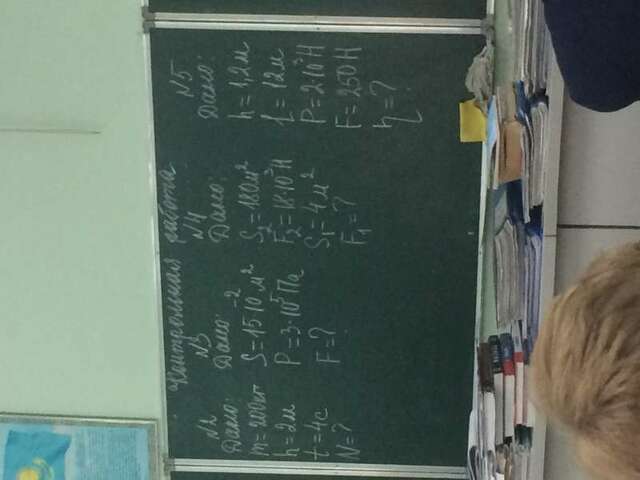 Контрольная работа
№2
Дано:
m = 200кг
h = 2м
t = 4с
N = ?
№3
Дано:
S = 15·10⁻² м²
P = 3·10⁵ Па
F = ?
№4
Дано:
S₂ = 180м²
F₂ = 18·10³Н
S₁ = 4м²
F₁ = ?
№5
Дано:
h = 1,2м
l = 12м
P = 2·10³Н
F = 250Н
η = ?